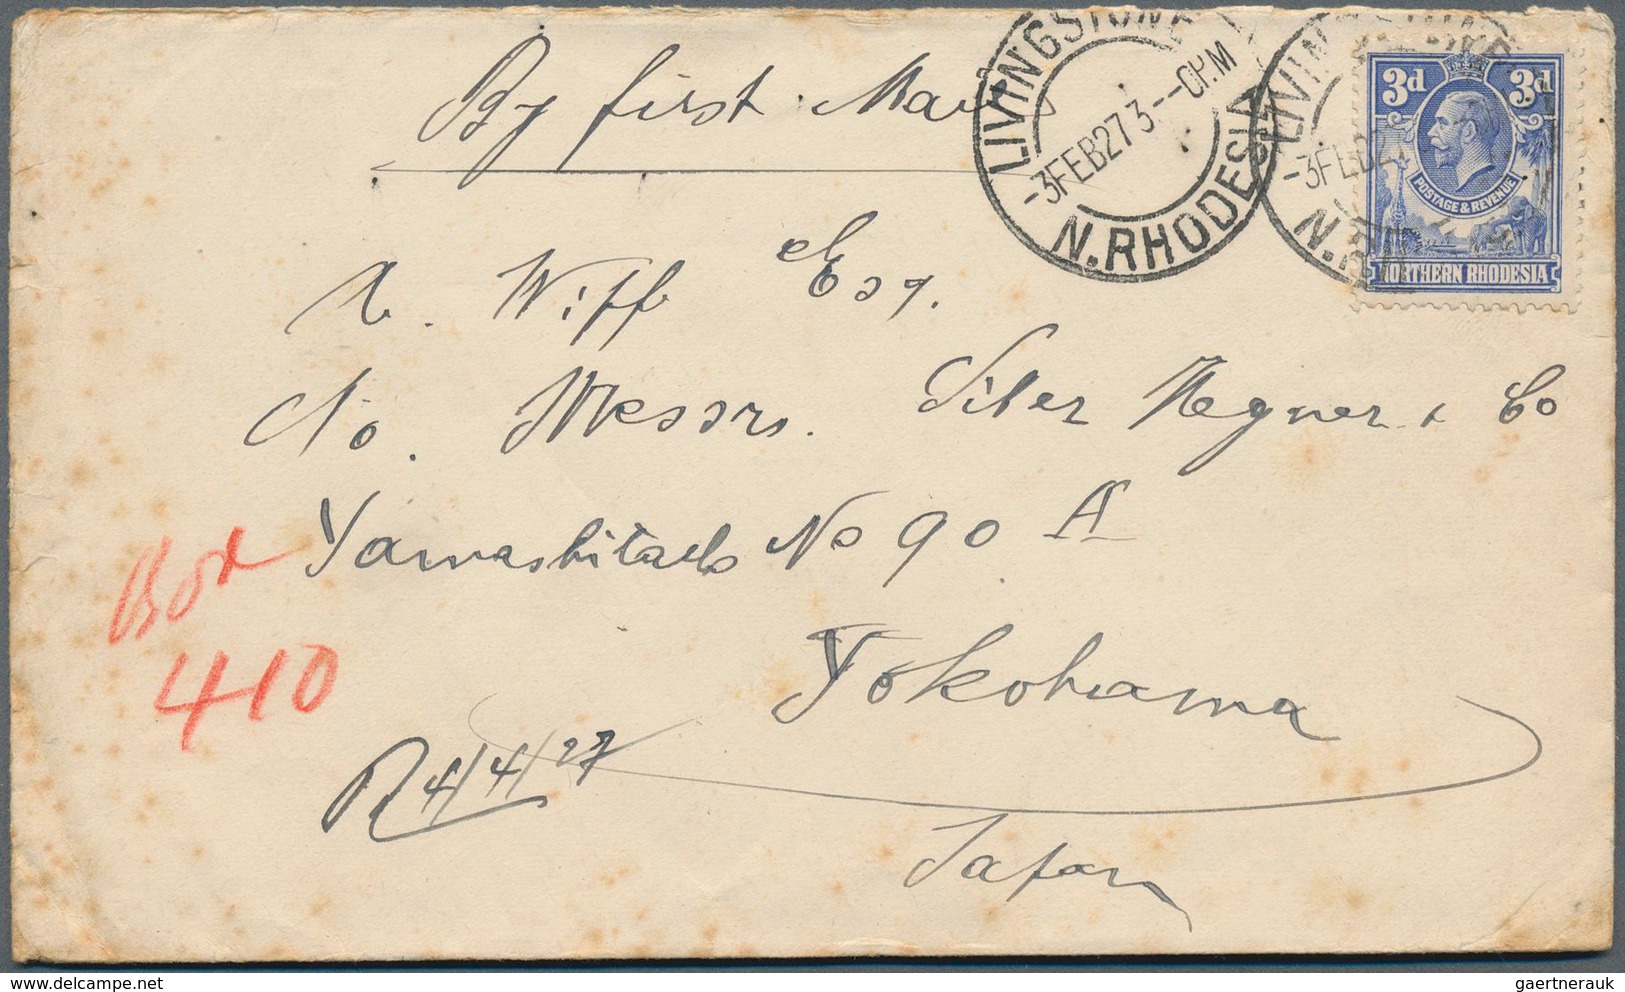 By first Mail
LIVINGSTONE
-3FEB27 3--0P.M
N.RHODESIA
LIVINGSTONE
-3FEB27
N.RH
3d 3d
POSTAGE & REVENUE
NORTHERN RHODESIA
A. Wiff Esq.
c/o. Messrs. Siber Hegner & Co
Yamashitacho No 90 A
Yokohama
Japan
Box
410
R 4/4/27
delcampe.net
gaertnerauk